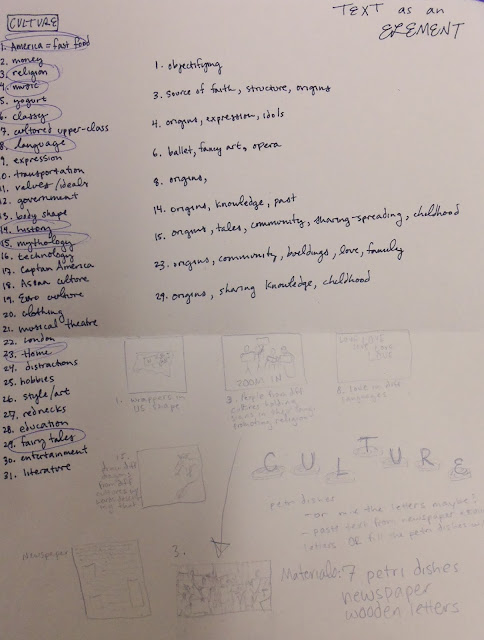 CULTURE
TEXT as an
ELEMENT
1. America = fast food
2. money
3. religion
4. music
5. yogurt
6. classy
7. cultured upper-class
8. language
9. expression
10. transportation
11. values/ideals
12. government
13. body shape
14. history
15. mythology
16. technology
17. Captain America
18. Asian culture
19. Euro culture
20. clothing
21. musical theatre
22. London
23. Home
24. distractions
25. hobbies
26. style/art
27. rednecks
28. education
29. fairy tales
30. entertainment
31. literature
1. objectifying
3. source of faith, structure, origins
4. origins, expression, idols
6. ballet, fancy art, opera
8. origins,
14. origins, knowledge, past
15. origins, tales, community, sharing-spreading, childhood
23. origins, community, buildings, love, family
29. origins, sharing knowledge, childhood
1. wrappers in
US shape
ZOOM IN
3. People from diff
cultures holding
signs in their lang.
8. Love in diff
languages
15.
CULTURE
petri dishes
- or use the letters maybe?
- paste text from newspaper
letters. OR fill the petri dishes
newspaper
3.
Materials: 7 petri dishes
newspaper
wooden letters